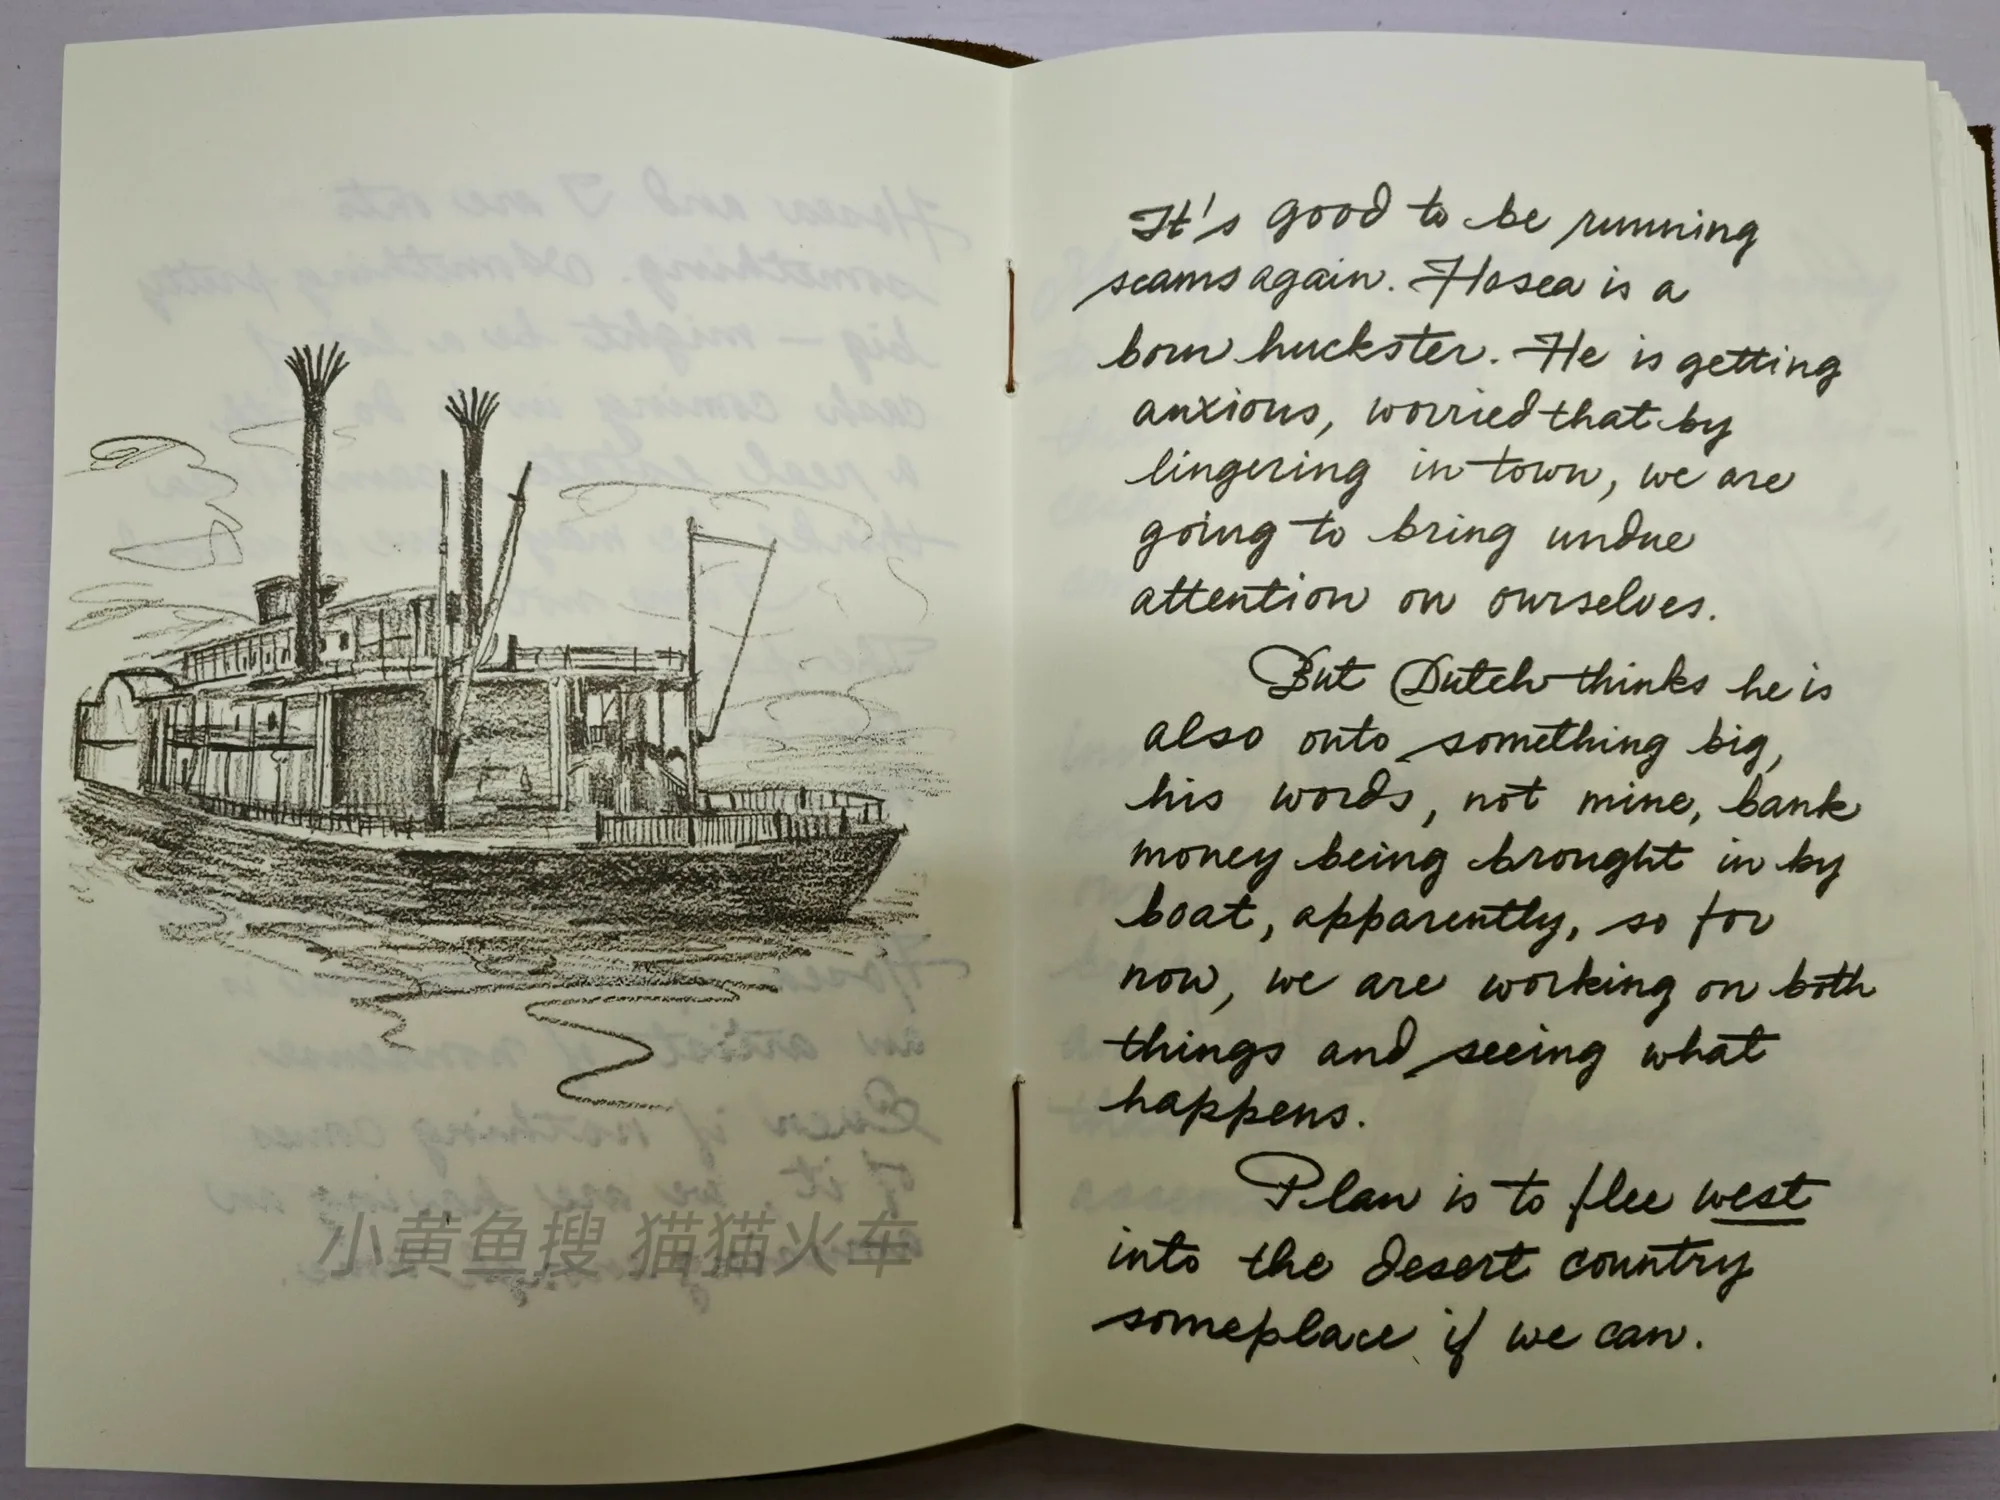 It's good to be running
scams again. Hosea is a
born huckster. He is getting
anxious, worried that by
lingering in town, we are
going to bring undue
attention on ourselves.
But Dutch thinks he is
also onto something big,
his words, not mine, bank
money being brought in by
boat, apparently, so for
now, we are working on both
things and seeing what
happens.
Plan is to flee west
into the desert country
someplace if we can.
小黄鱼搜 猫猫火车